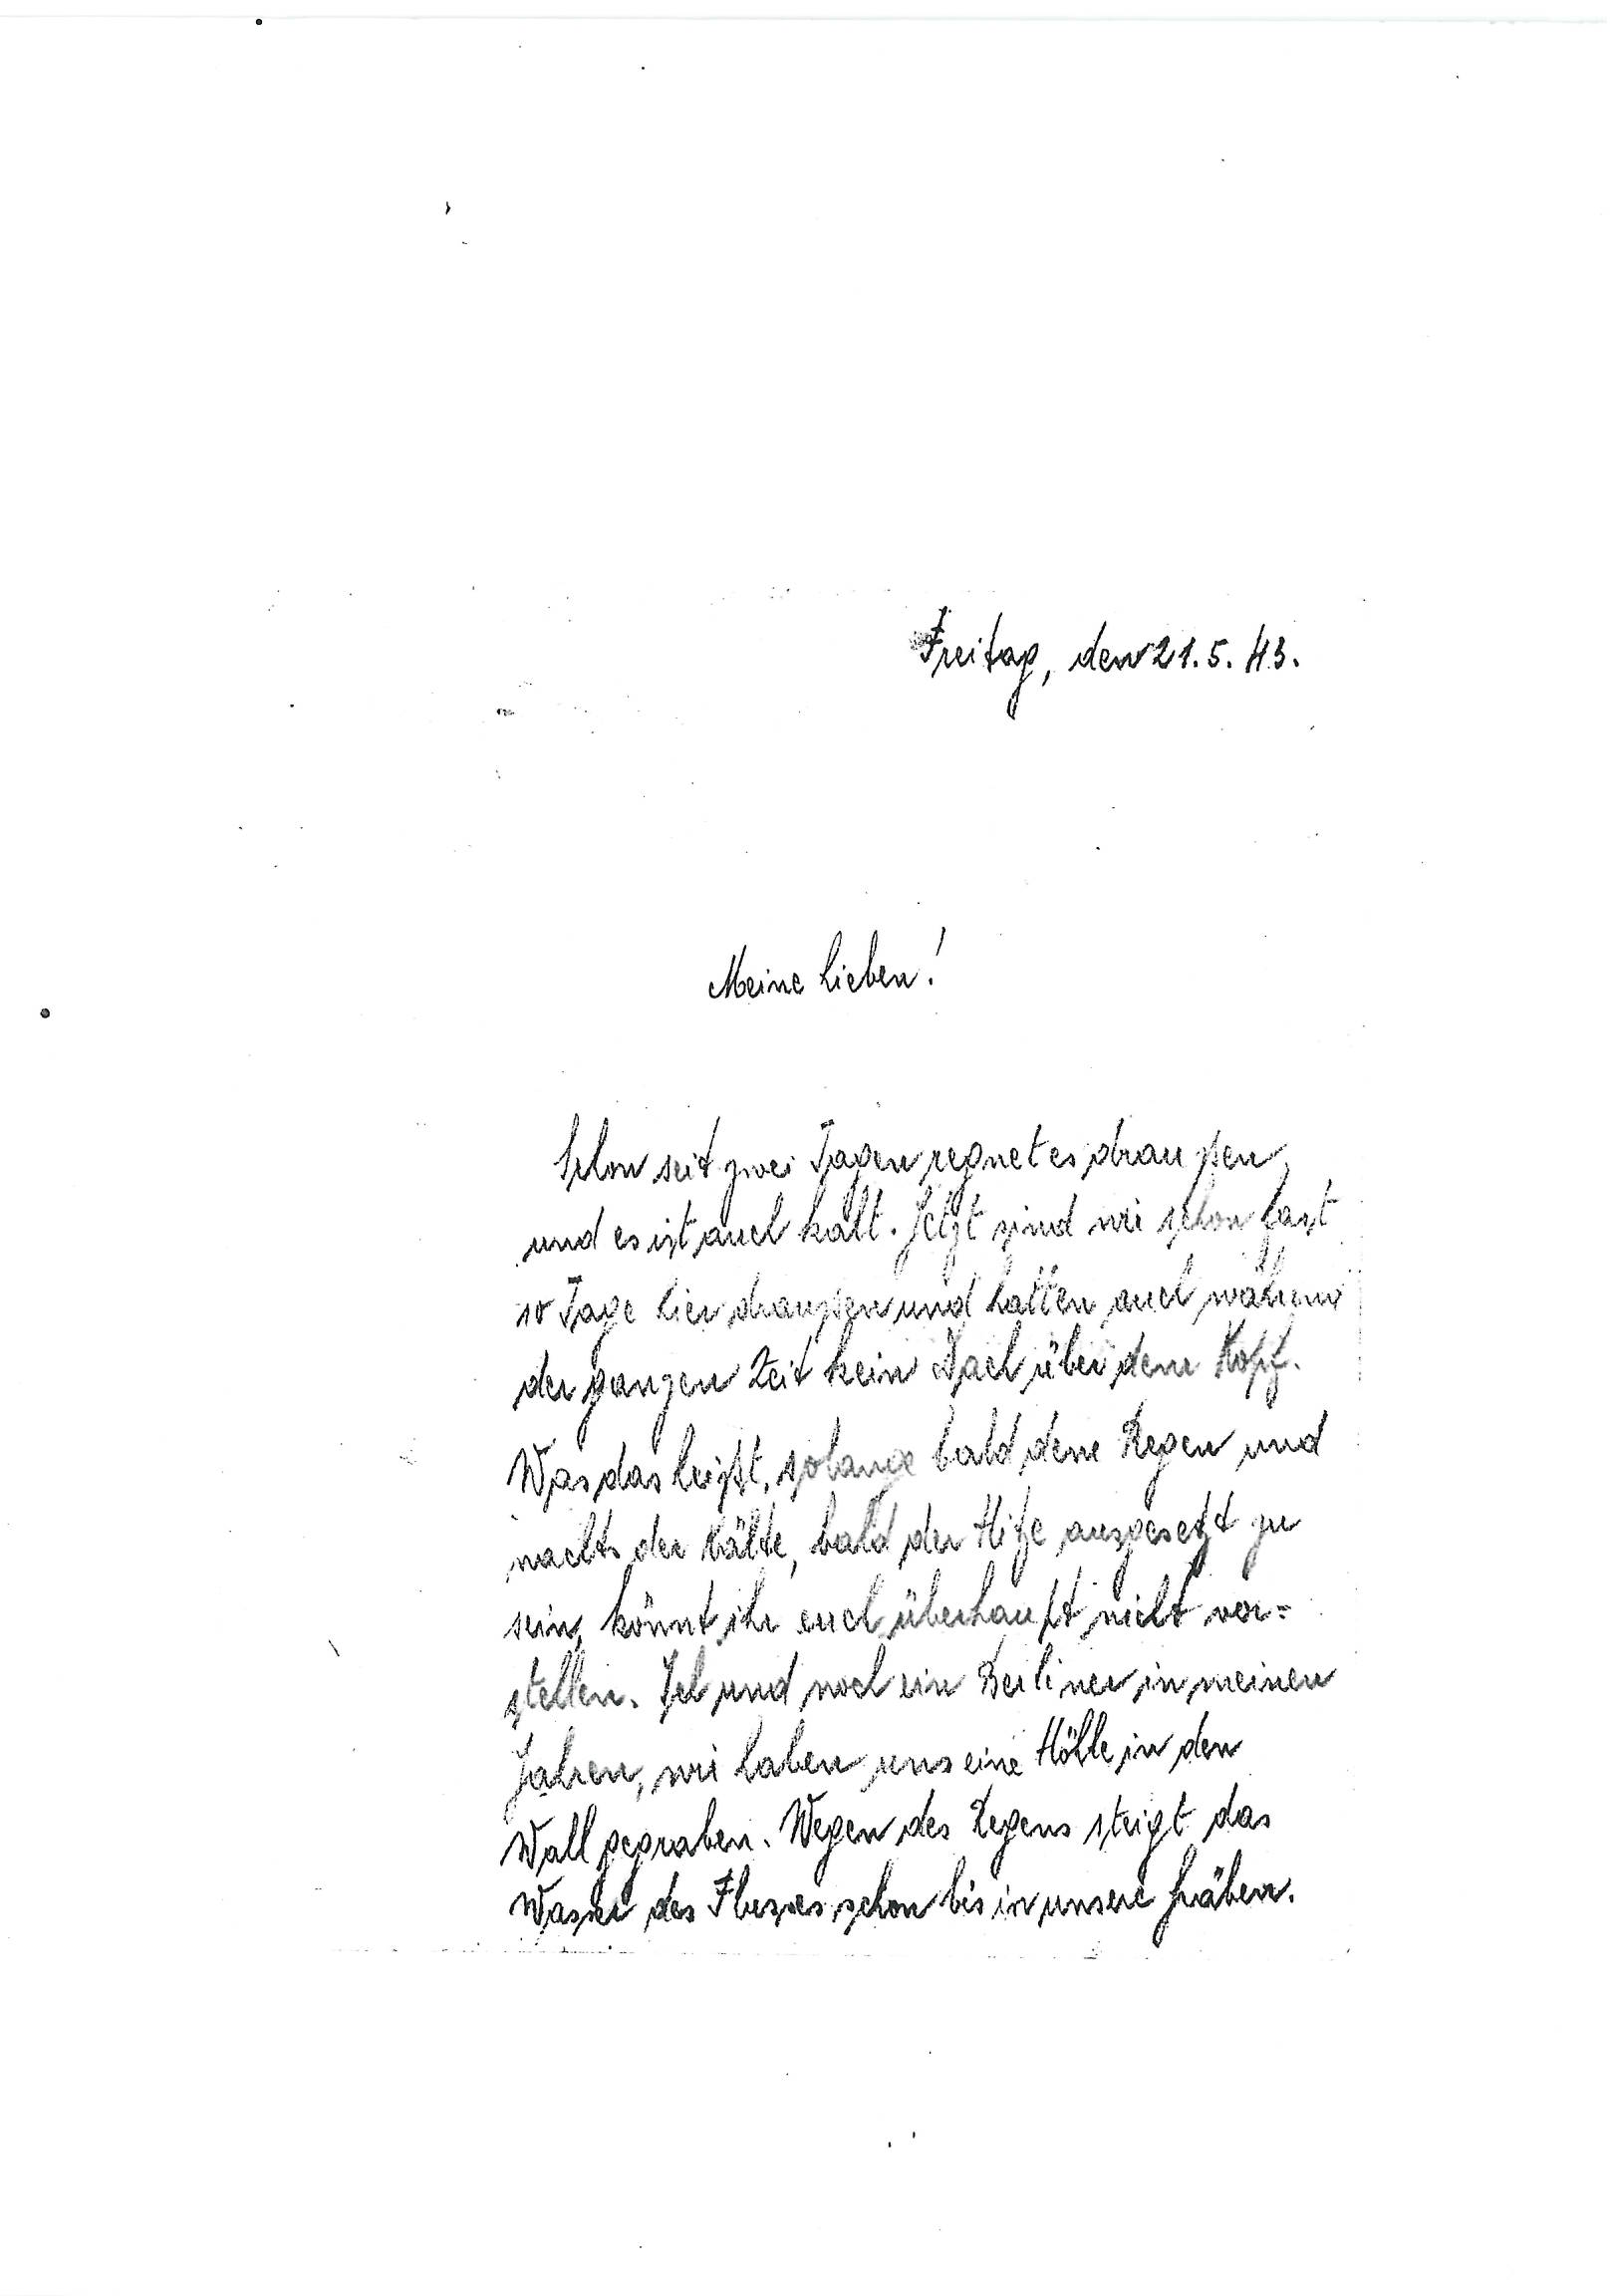 Freitag, den 21.5.43.
Meine Lieben!
Schon seit zwei Tagen regnet es draußen
und es ist auch kalt. Jetzt sind wir schon fast
10 Tage hier draußen und hatten auch während
der ganzen Zeit kein Dach über dem Kopf.
Was das heißt, solange bald dem Regen und
nachts der Kälte, bald der Hitze ausgesetzt zu
sein, könnt ihr euch überhaupt nicht vor=
stellen. Ich und noch ein Berliner in meinen
Jahren, wir haben uns eine Höhle in den
Wall gegraben. Wegen des Regens steigt das
Wasser des Flusses schon bis in unsere Gräben.